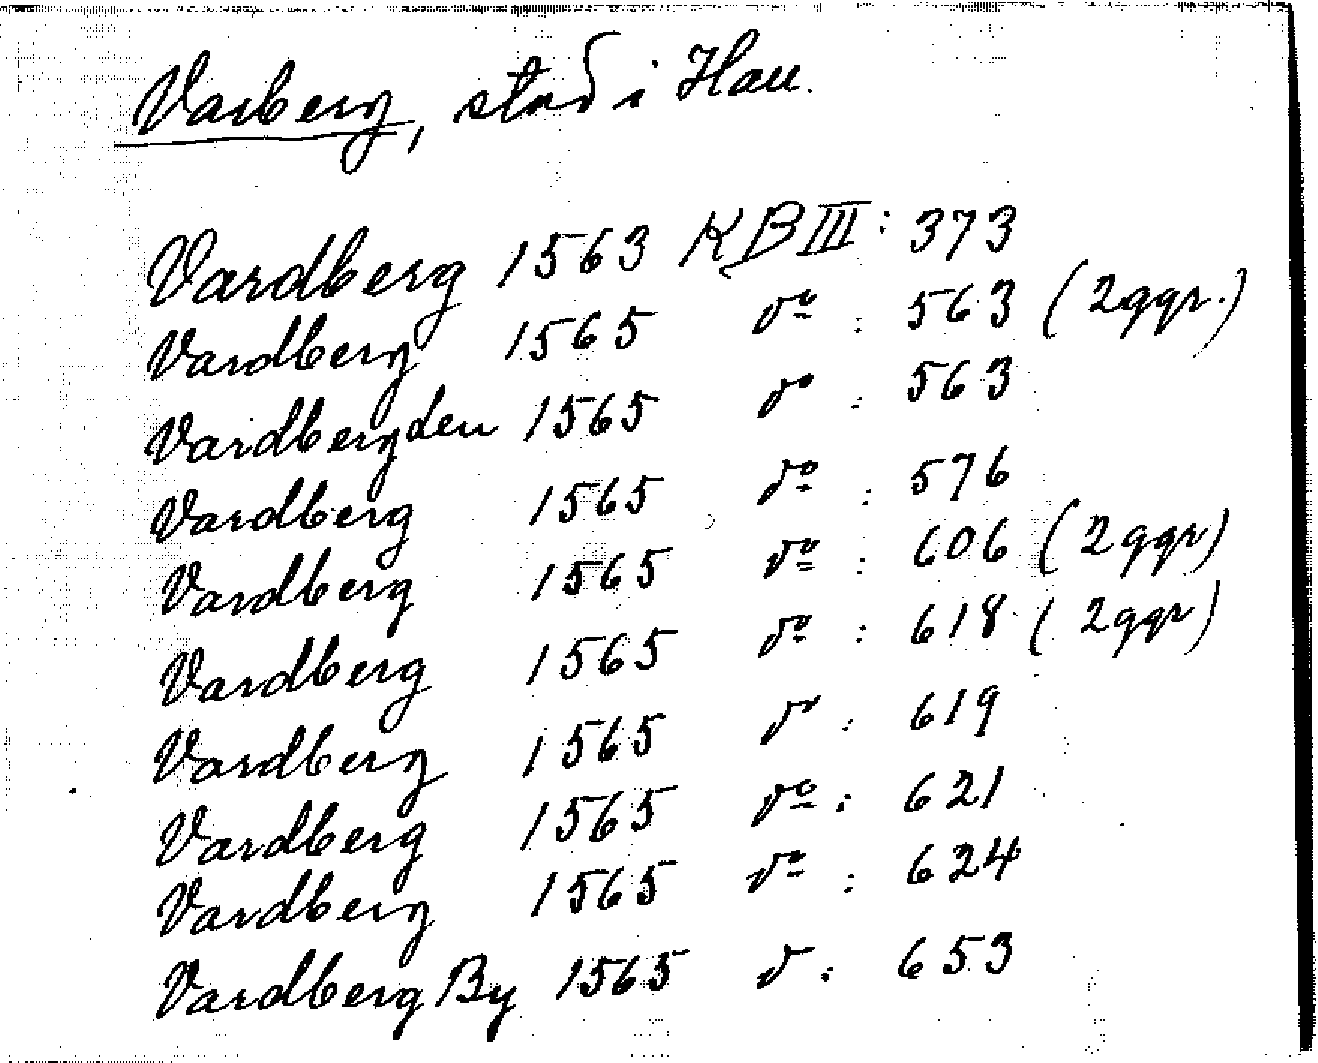 Varberg, stad i Hall.
Vardberg 1563 KB III: 373
Vardberg 1565 do : 563 (2 ggr.)
Vardbergden 1565 do : 563
Vardberg 1565 do : 576
Vardberg 1565 do : 606 (2 ggr)
Vardberg 1565 do : 618 (2 ggr)
Vardberg 1565 do : 619
Vardberg 1565 do : 621
Vardberg 1565 do : 624
Vardberg By 1565 do : 653